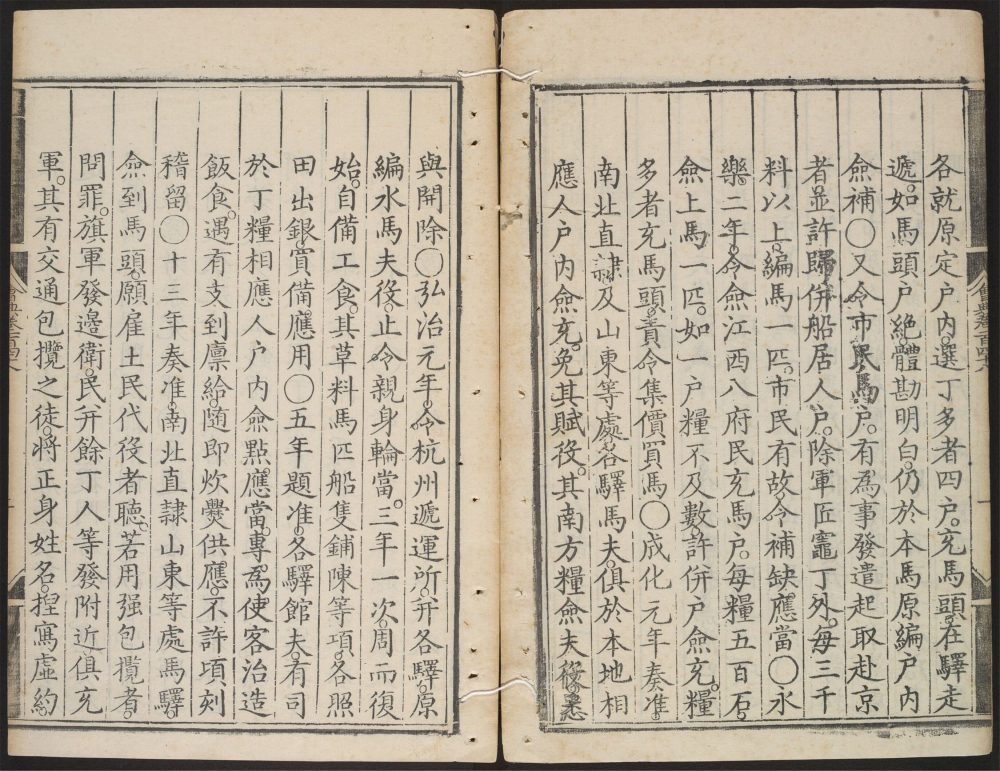 各就原定户内。選丁多者四户。充馬頭。在驛走
遞。如馬頭户絶。體勘明白。仍於本馬原編户内
僉補○又令市民馬户。有為事發遣起取赴京
者並許歸併船居人户。除軍匠竈丁外。每三千
料以上。編馬一匹。市民有故。令補缺應當○永
樂二年。令僉江西八府民充馬户。每糧五百石。
僉上馬一匹。如一户糧不及數。許併户僉充。糧
多者充馬頭。責令集價買馬○成化元年奏准。
南北直隷。及山東等處。各驛馬夫。俱於本地相
應人户内僉充。免其賦役。其南方糧僉夫役。悉
與開除○弘治元年。令杭州遞運所。并各驛。原
編水馬夫役。止令親身輪當。三年一次。周而復
始。自備工食。其草料馬匹船隻鋪陳等項。各照
田出銀買備。應用○五年題准。各驛館夫。有司
於丁糧相應人户内僉點。應當。專為使客治造
飯食。遇有支到廪給。隨即炊爨供應。不許頃刻
稽留○十三年奏准。南北直隷山東等處馬驛。
僉到馬頭。願雇土民代役者聽。若用强包攬者。
問罪。旗軍發邊衛。民并餘丁人等發附近。俱充
軍。其有交通包攬之徒。將正身姓名。捏寫虚約。